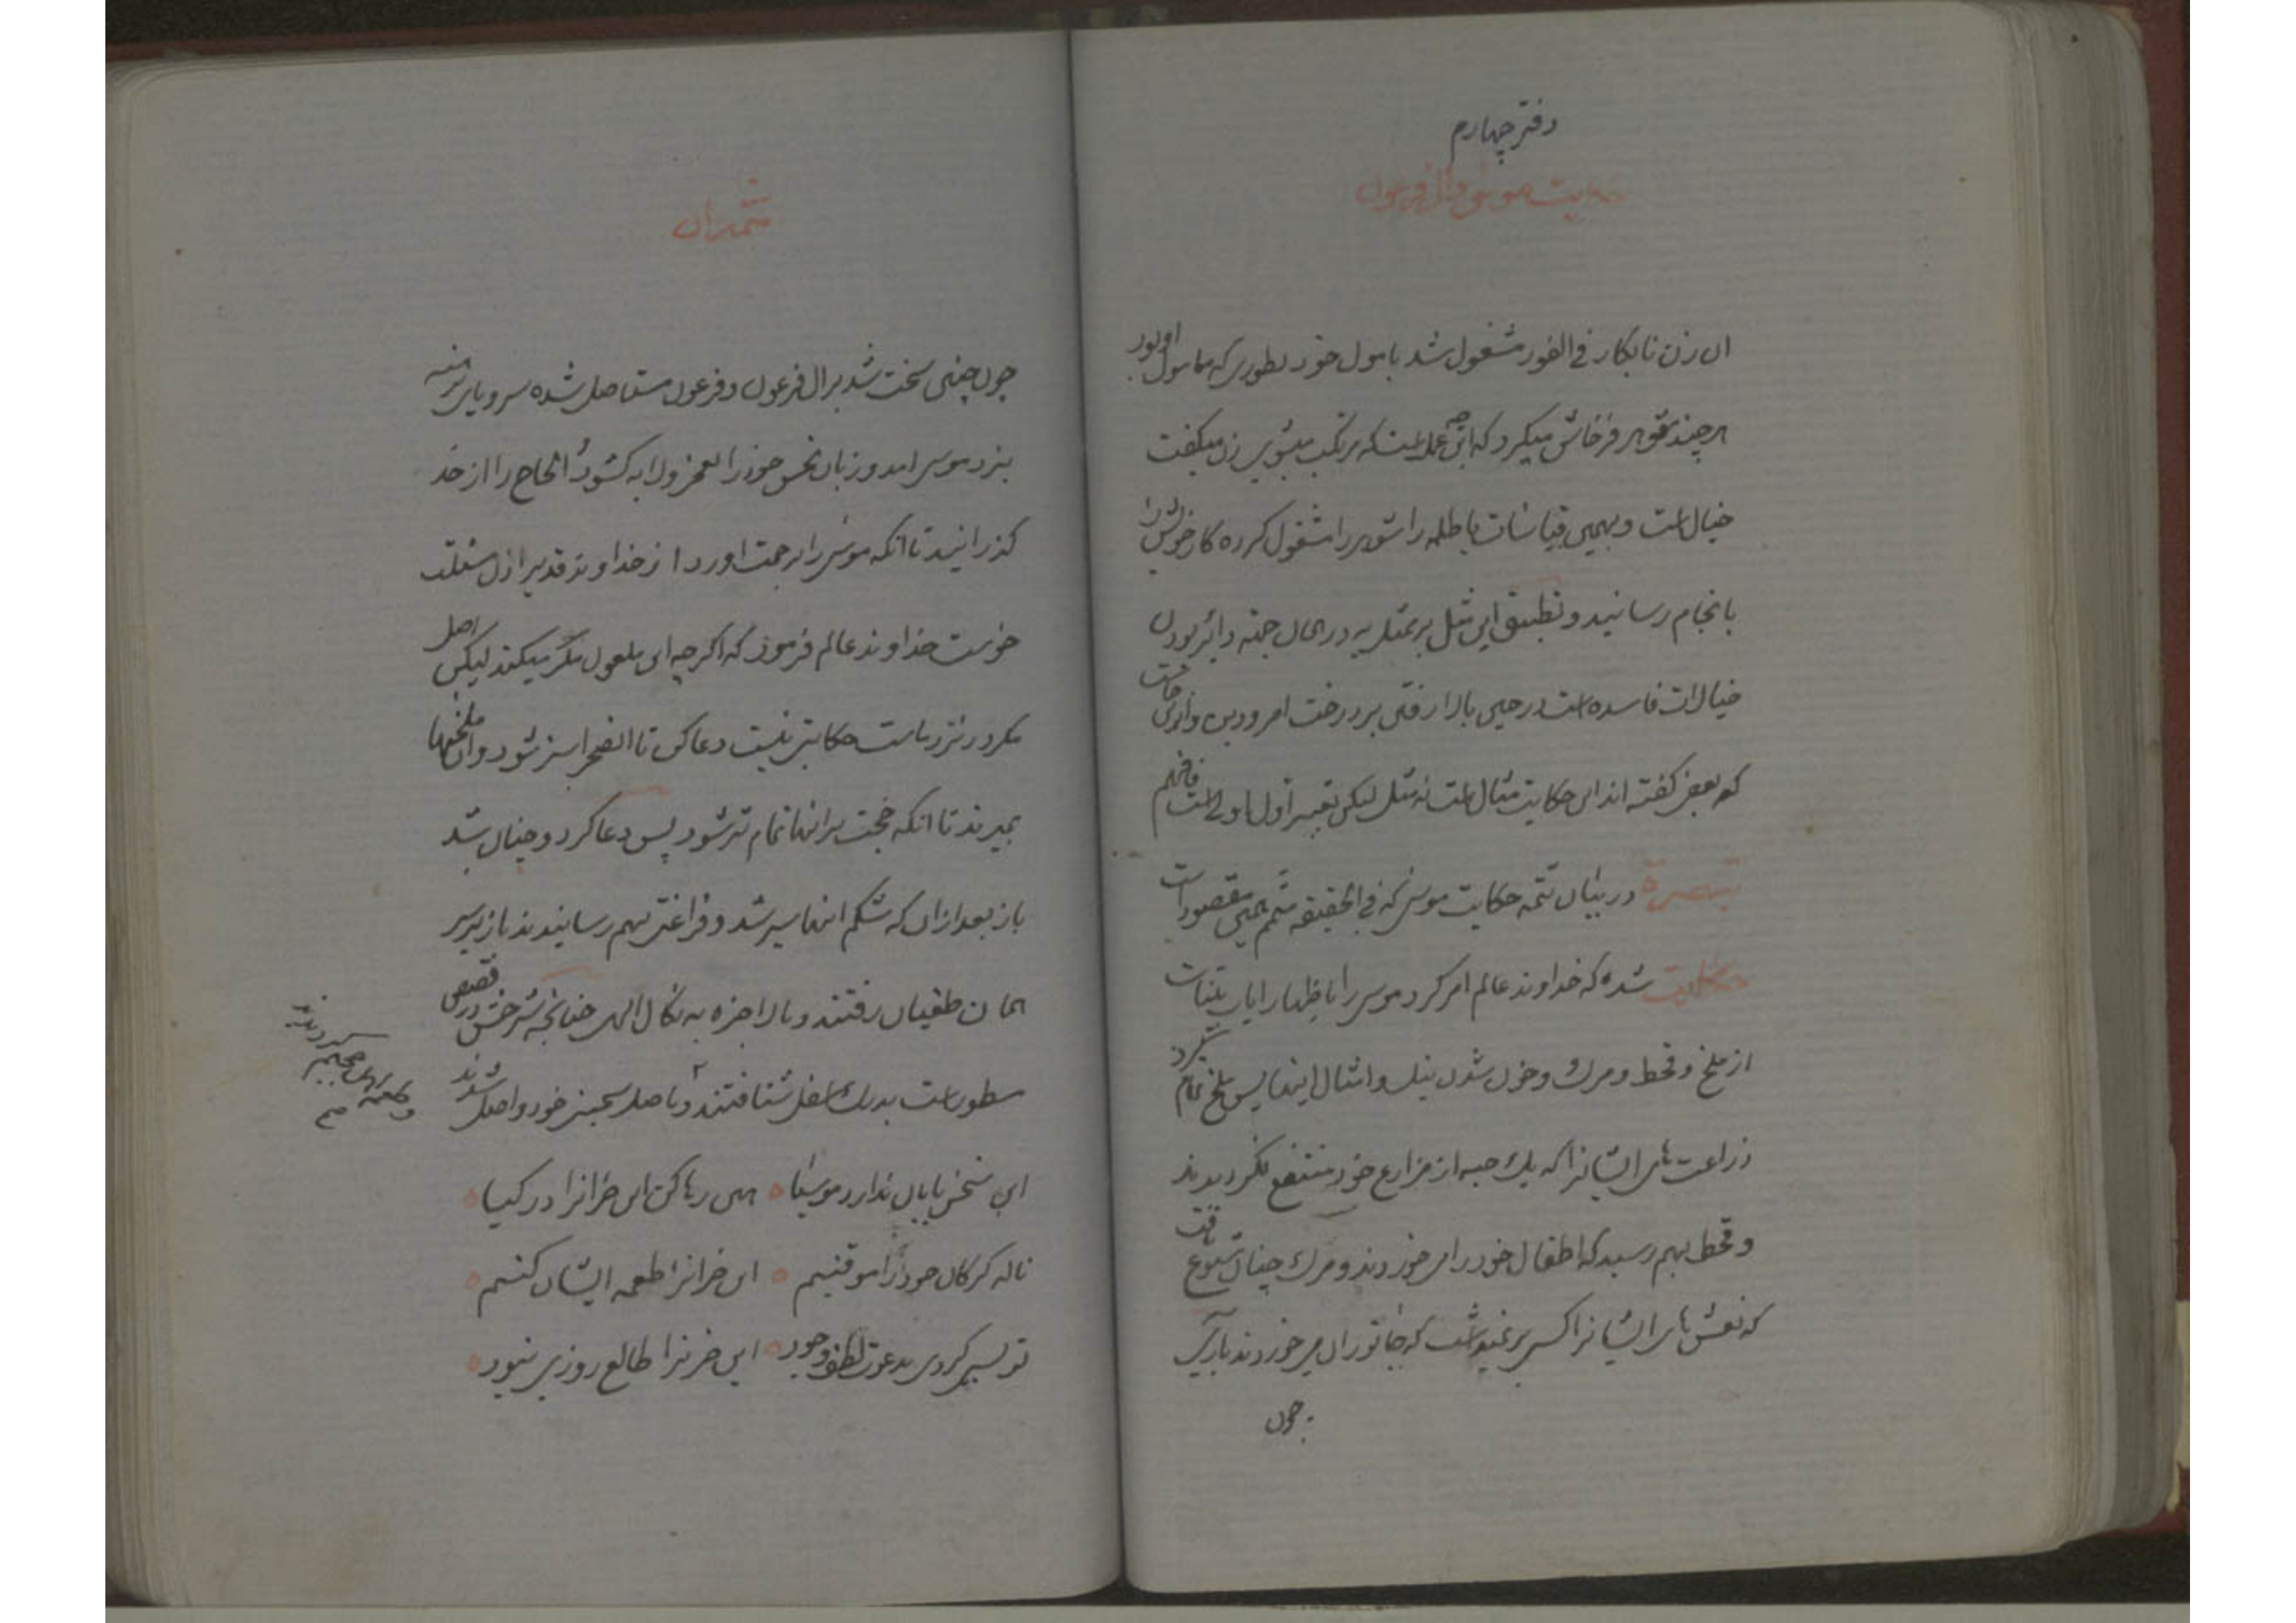 دفتر چهارم
حکایت موسی و ال فرعون
ان زن نابکار فی الفور مشغول شد با مول خود بطوری که مامول او بود
هر چند شوهر فرخاش میکرد که این چه عملست که مرتکب میشوی زن میکفت
خیال است و بهمین قیاسات باطله را شوهر را مشغول کرده کار خویش را
بانجام رسانید و تطبیق این مثل بر ممثل به در حال جنه دائر بودن
خیالات فاسده است در حین بالا رفتن بر درخت امرودبن و
که بعض کفته اند این حکایت مثال است نه مثل لیکن تعبیر اول اولی است فافهم
تبصرة در بیان تتمه حکایت موسی که فی الحقیقه متمم همین مقصود است
حکایت شده که خداوند عالم امر کرد موسی را باظهار ایات بینات
از ملخ و قحط و مرک و خون شدن نیل و امثال اینها پس ملخ تمام
زراعت های ایشانرا که یک حبه از مزارع خود منتفع نکردیدند
و قحط بهم رسید که اطفال خود را می خوردند و مرک چنان شیوع یافت
که نعش های ایشانرا کسی بر نمیداشت که جانوران می خوردند
چون
تتمه ان
چون چنین سخت شد بر ال فرعون و فرعون مستاصل شده سر و پای برهنه
بنزد موسی امد و زبان نحس خود را بعجز و لابه کشود الحاح را از حد
کذرانید تا انکه موسی را برحمت اورد از خداوند قدیر ازل مسئلت
خواست خداوند عالم فرمود که اکرچه این ملعون مکر میکند لیکن اصل
مکر در نزد ماست حکایتی نیست دعا کن تا الصحرا سبز شود و ان ملخها
بمیرند تا انکه حجت بر انها تمام تر شود پس دعا کرد و چنان شد
باز بعد از ان که شکم انها سیر شد و فراغتی بهم رسانیدند باز بر سر
همان طغیان رفتند و بالاخره به نکال الهی چنانچه شرحش در قصص
مسطور است بدرک اسفل شتافتند و باصل سجین خود واصل شدند
این سخن پایان ندارد موسیا ٥ هین رها کن این خرانرا در کیا ٥
ناله کرکان خود را موقنیم ٥ این خرانرا طعمه ایشان کنیم ٥
تو بسی کردی بدعوت لطف وجود ٥ این خرنرا طالع روزی نبود ٥